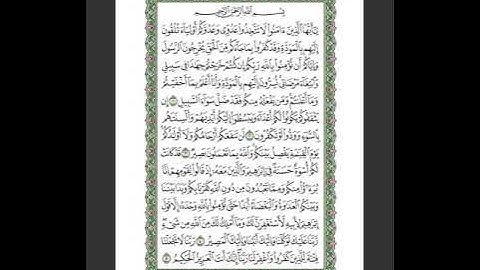 بِسْمِ ٱللَّهِ ٱلرَّحْمَٰنِ ٱلرَّحِيمِ
يَٰٓأَيُّهَا ٱلَّذِينَ ءَامَنُوا۟ لَا تَتَّخِذُوا۟ عَدُوِّى وَعَدُوَّكُمْ أَوْلِيَآءَ تُلْقُونَ
إِلَيْهِم بِٱلْمَوَدَّةِ وَقَدْ كَفَرُوا۟ بِمَا جَآءَكُم مِّنَ ٱلْحَقِّ يُخْرِجُونَ ٱلرَّسُولَ
وَإِيَّاكُمْ أَن تُؤْمِنُوا۟ بِٱللَّهِ رَبِّكُمْ إِن كُنتُمْ خَرَجْتُمْ جِهَٰدًا فِى سَبِيلِى
وَٱبْتِغَآءَ مَرْضَاتِى تُسِرُّونَ إِلَيْهِم بِٱلْمَوَدَّةِ وَأَنَا۠ أَعْلَمُ بِمَآ أَخْفَيْتُمْ
وَمَآ أَعْلَنتُمْ وَمَن يَفْعَلْهُ مِنكُمْ فَقَدْ ضَلَّ سَوَآءَ ٱلسَّبِيلِ ١ إِن
يَثْقَفُوكُمْ يَكُونُوا۟ لَكُمْ أَعْدَآءً وَيَبْسُطُوٓا۟ إِلَيْكُمْ أَيْدِيَهُمْ وَأَلْسِنَتَهُم
بِٱلسُّوٓءِ وَوَدُّوا۟ لَوْ تَكْفُرُونَ ٢ لَن تَنفَعَكُمْ أَرْحَامُكُمْ وَلَآ أَوْلَٰدُكُمْ
يَوْمَ ٱلْقِيَٰمَةِ يَفْصِلُ بَيْنَكُمْ وَٱللَّهُ بِمَا تَعْمَلُونَ بَصِيرٌ ٣ قَدْ كَانَتْ
لَكُمْ أُسْوَةٌ حَسَنَةٌ فِىٓ إِبْرَٰهِيمَ وَٱلَّذِينَ مَعَهُۥٓ إِذْ قَالُوا۟ لِقَوْمِهِمْ إِنَّا
بُرَءَٰٓؤُا۟ مِنكُمْ وَمِمَّا تَعْبُدُونَ مِن دُونِ ٱللَّهِ كَفَرْنَا بِكُمْ وَبَدَا بَيْنَنَا
وَبَيْنَكُمُ ٱلْعَدَٰوَةُ وَٱلْبَغْضَآءُ أَبَدًا حَتَّىٰ تُؤْمِنُوا۟ بِٱللَّهِ وَحْدَهُۥٓ إِلَّا قَوْلَ
إِبْرَٰهِيمَ لِأَبِيهِ لَأَسْتَغْفِرَنَّ لَكَ وَمَآ أَمْلِكُ لَكَ مِنَ ٱللَّهِ مِن شَىْءٍ
رَّبَّنَا عَلَيْكَ تَوَكَّلْنَا وَإِلَيْكَ أَنَبْنَا وَإِلَيْكَ ٱلْمَصِيرُ ٤ رَبَّنَا لَا تَجْعَلْنَا
فِتْنَةً لِّلَّذِينَ كَفَرُوا۟ وَٱغْفِرْ لَنَا رَبَّنَآ إِنَّكَ أَنتَ ٱلْعَزِيزُ ٱلْحَكِيمُ ٥